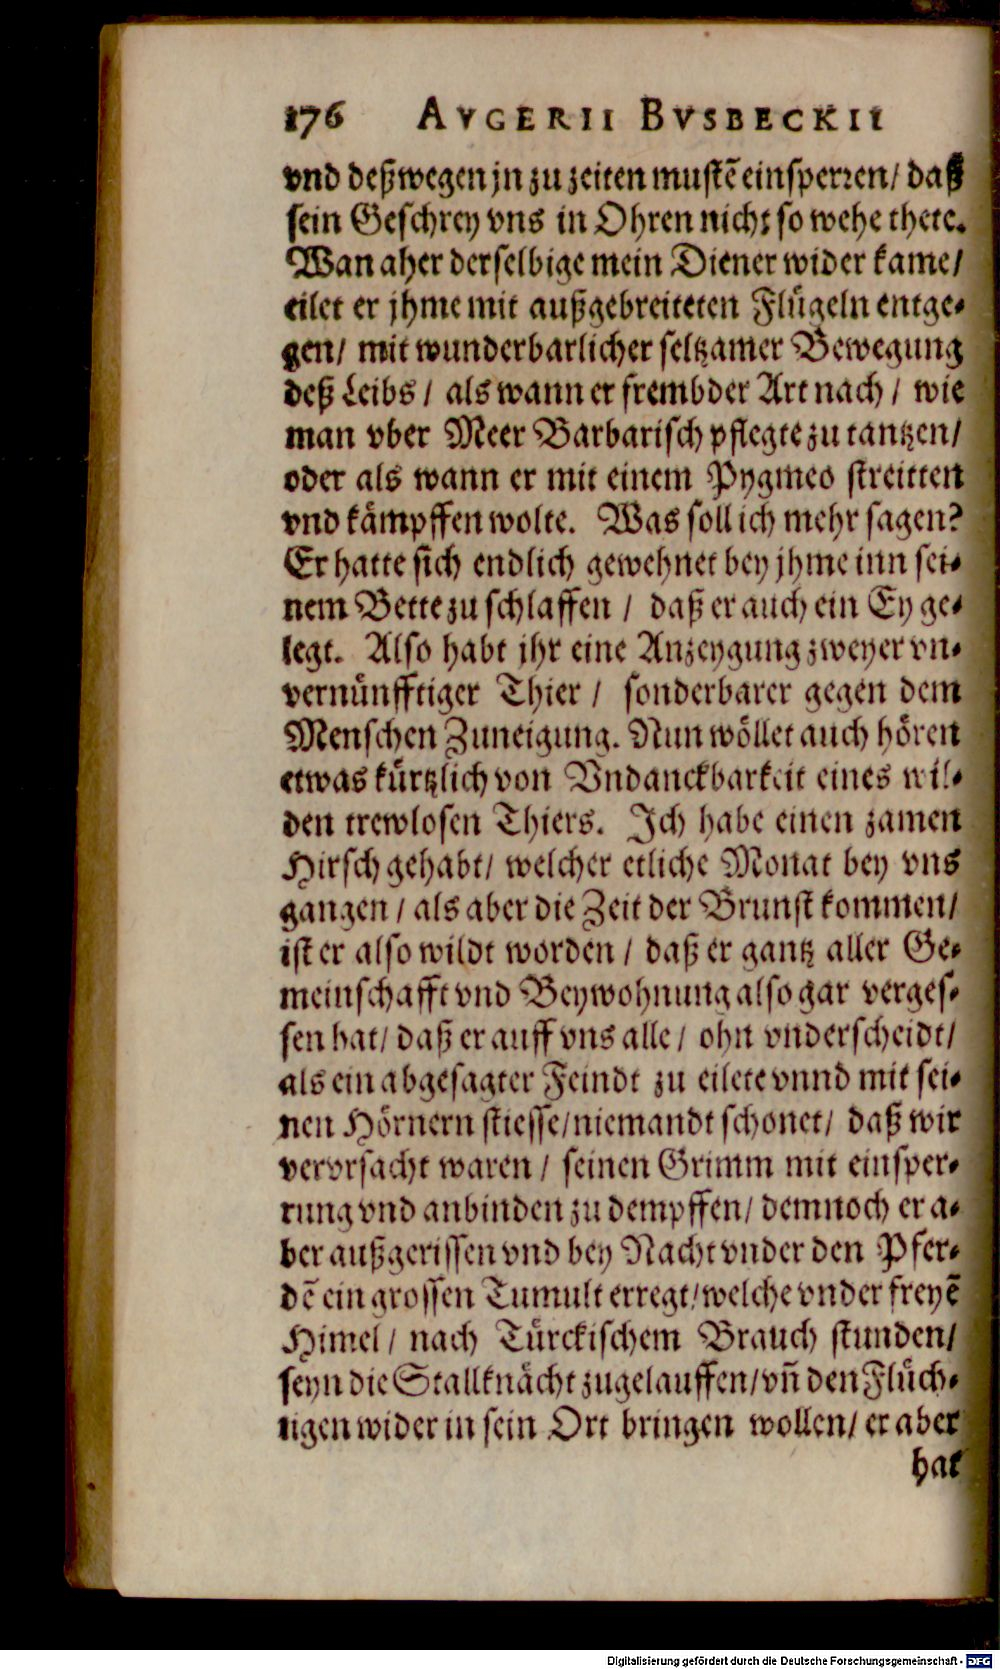 176 AVGERII BVSBECKII
vnd deßwegen jn zu zeiten mustẽ einsperren/ daß
sein Geschrey vns in Ohren nicht so wehe thete.
Wan aher derselbige mein Diener wider kame/
eilet er jhme mit außgebreiteten Flůgeln entge-
gen/ mit wunderbarlicher seltzamer Bewegung
deß Leibs / als wann er frembder Art nach / wie
man vber Meer Barbarisch pflegte zu tantzen/
oder als wann er mit einem Pygmeo streitten
vnd kåmpffen wolte. Was soll ich mehr sagen?
Er hatte sich endlich gewehnet bey jhme inn sei-
nem Bette zu schlaffen / daß er auch ein Ey ge-
legt. Also habt jhr eine Anzeygung zweyer vn-
vernůnfftiger Thier / sonderbarer gegen dem
Menschen Zuneigung. Nun wöllet auch hören
etwas kůrtzlich von Vndanckbarkeit eines wil-
den trewlosen Thiers. Jch habe einen zamen
Hirsch gehabt/ welcher etliche Monat bey vns
gangen / als aber die Zeit der Brunst kommen/
ist er also wildt worden / daß er gantz aller Ge-
meinschafft vnd Beywohnung also gar verges-
sen hat/ daß er auff vns alle / ohn vnderscheidt/
als ein abgesagter Feindt zu eilete vnnd mit sei-
nen Hörnern stiesse/ niemandt schonet/ daß wir
vervrsacht waren / seinen Grimm mit einsper-
rung vnd anbinden zu dempffen/ demnoch er a-
ber außgerissen vnd bey Nacht vnder den Pfer-
dẽ ein grossen Tumult erregt/ welche vnder freyẽ
Himel / nach Tůrckischem Brauch stunden/
seyn die Stallknåcht zugelauffen/ vñ den Flůch-
tigen wider in sein Ort bringen wollen/ er aber
hat
Digitalisierung gefördert durch die Deutsche Forschungsgemeinschaft - DFG